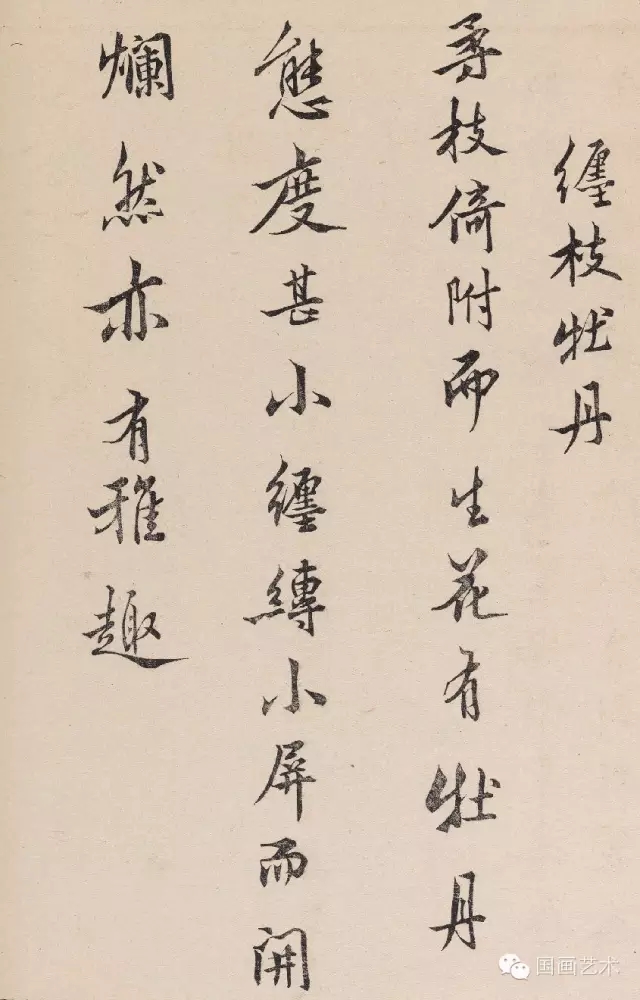 纏枝牡丹
尋枝倚附而生花有牡丹
態度甚小纏縛小屏而開
爛然亦有雅趣
国画艺术